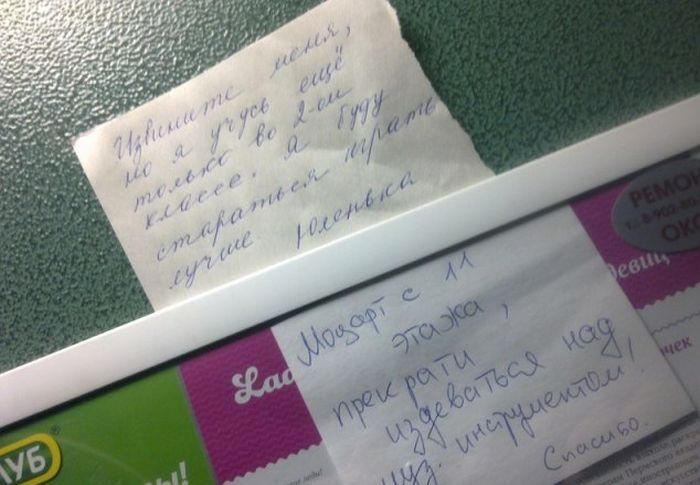 Извините меня,
но я учусь ещё
только во 2-ом
классе. Я буду
стараться играть
лучше Юленька
РЕМОН
ОКО
Моцарт с 11
этажа,
прекрати
издеваться над
муз. инструментом.
Спасибо.
Lad
девиц
очек
УБ
Ы!